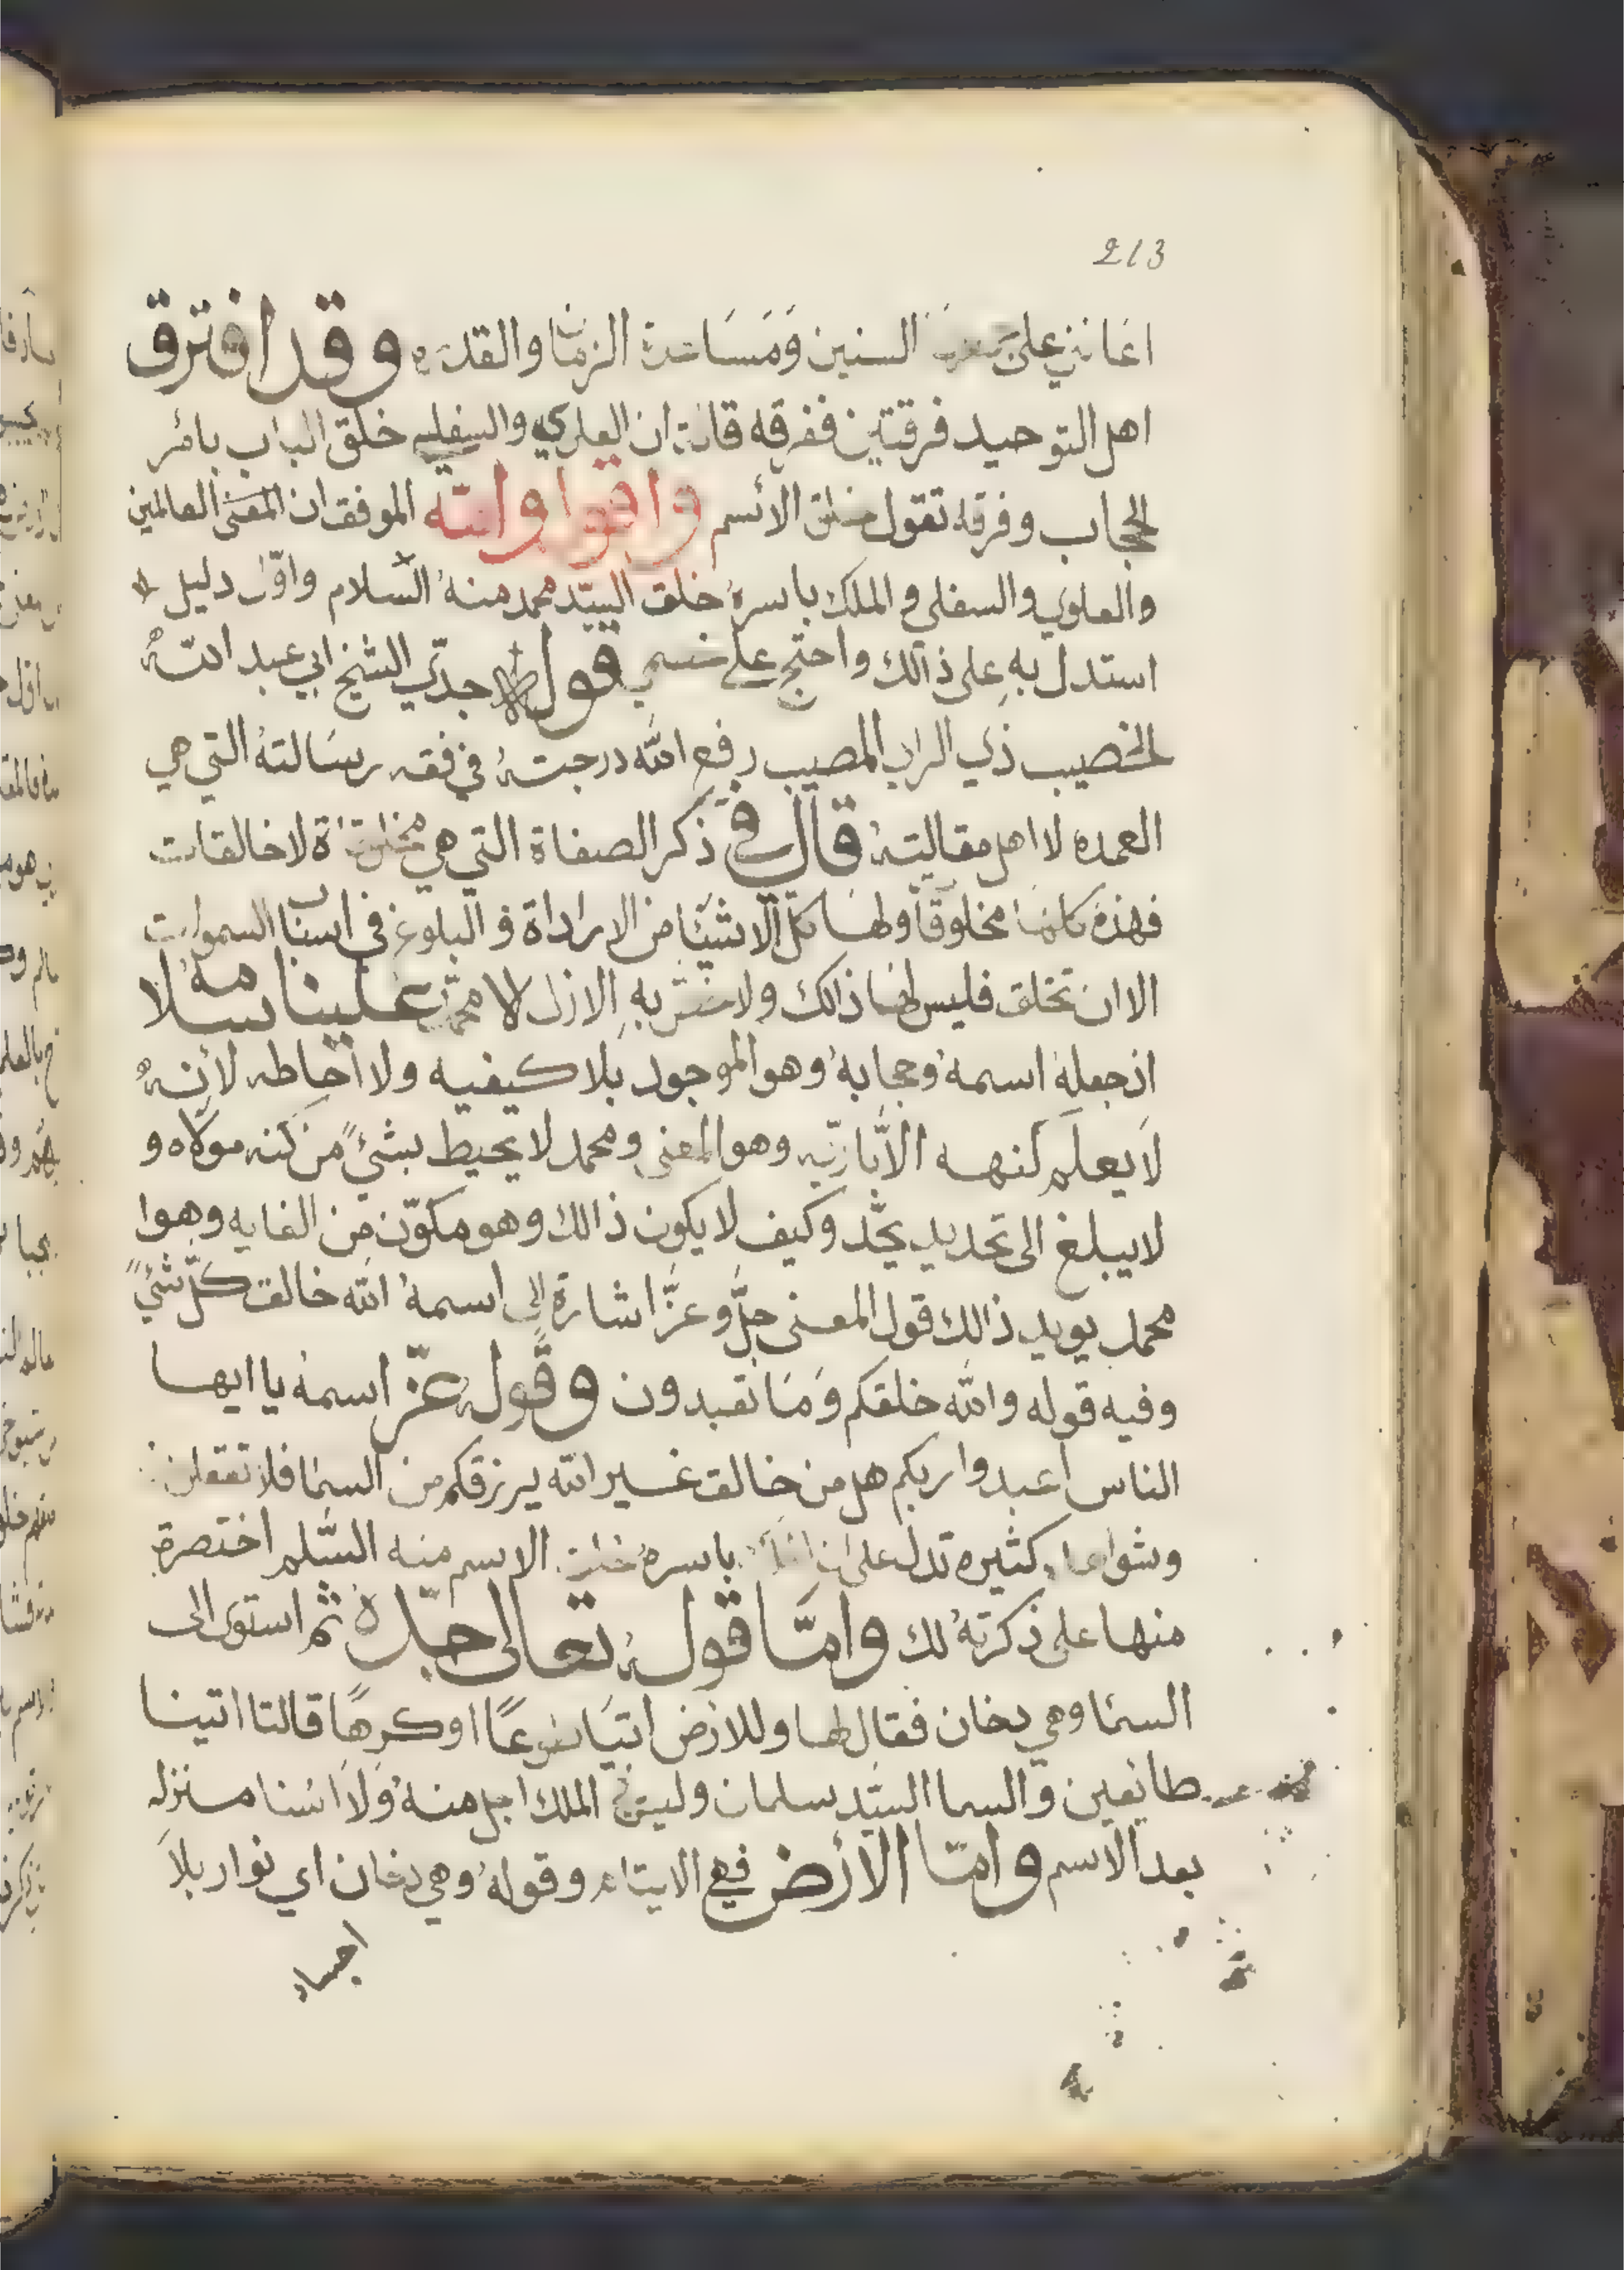 213
اعانني على السنين ومساعدة الزمان والقدره وقد افترق
اهل التوحيد فرقتين ففرقه قالت ان العلوي والسفلي خلق الباب بامر
الحجاب وفرقه تقول خلق الاسم واقوا والله الموفق ان المعنى العالمين
والعلوي والسفلي و الملك باسره خلق السيد محمد منه السلام واول دليل
استدل به على ذالك واحتج على خصمي قول جدي الشيخ ابي عبد الله
الخصيب ذي الراي المصيب رفع الله درجته في فقه رسالته التي هي
العمده لا اهل مقالته قال في ذكر الصفاة التي هي لا خالقات
فهذه كلها مخلوقاً ولها كل الاشيا من الاراداة و البلوغ في اسباب السموات
الا ان تخلق فليس لها ذالك ولا به الازل الا محمد علينا سلامه
اذ جعله اسمه وحجابه وهو الموجود بلا كيفيه ولا احاطه لانه
لا يعلم كنهه الا باريه وهو المعنى ومحمد لا يحيط بشئ من كنه مولاه و
لا يبلغ الى تحديد يحد وكيف لا يكون ذالك وهو مكون من الغايه وهوا
محمد يويد ذالك قول المعنى جل وعز اشارة الى اسمه الله خالق كل شئ
وفيه قوله والله خلقكم وما تعبدون وقوله عز اسمه يا ايها
الناس اعبدوا ربكم هل من خالق غير الله يرزقكم من السما فلا تعقلن
كثيره تدل على ان باسره خلق الاسم منه السلم اختصرة
منها على ذكرته لك واما قوله تعالى جده ثم استوى الى
السما وهي دخان فقال لها وللارض اتيا طوعاً او كرهاً قالتا اتينا
طايعين والسما السيد سلمان وليس في الملك اجل منه ولا اسنا منزله
بعد الاسم واما الارض فهي الايتام وقوله وهي دخان اي نوار بلا
اجساد